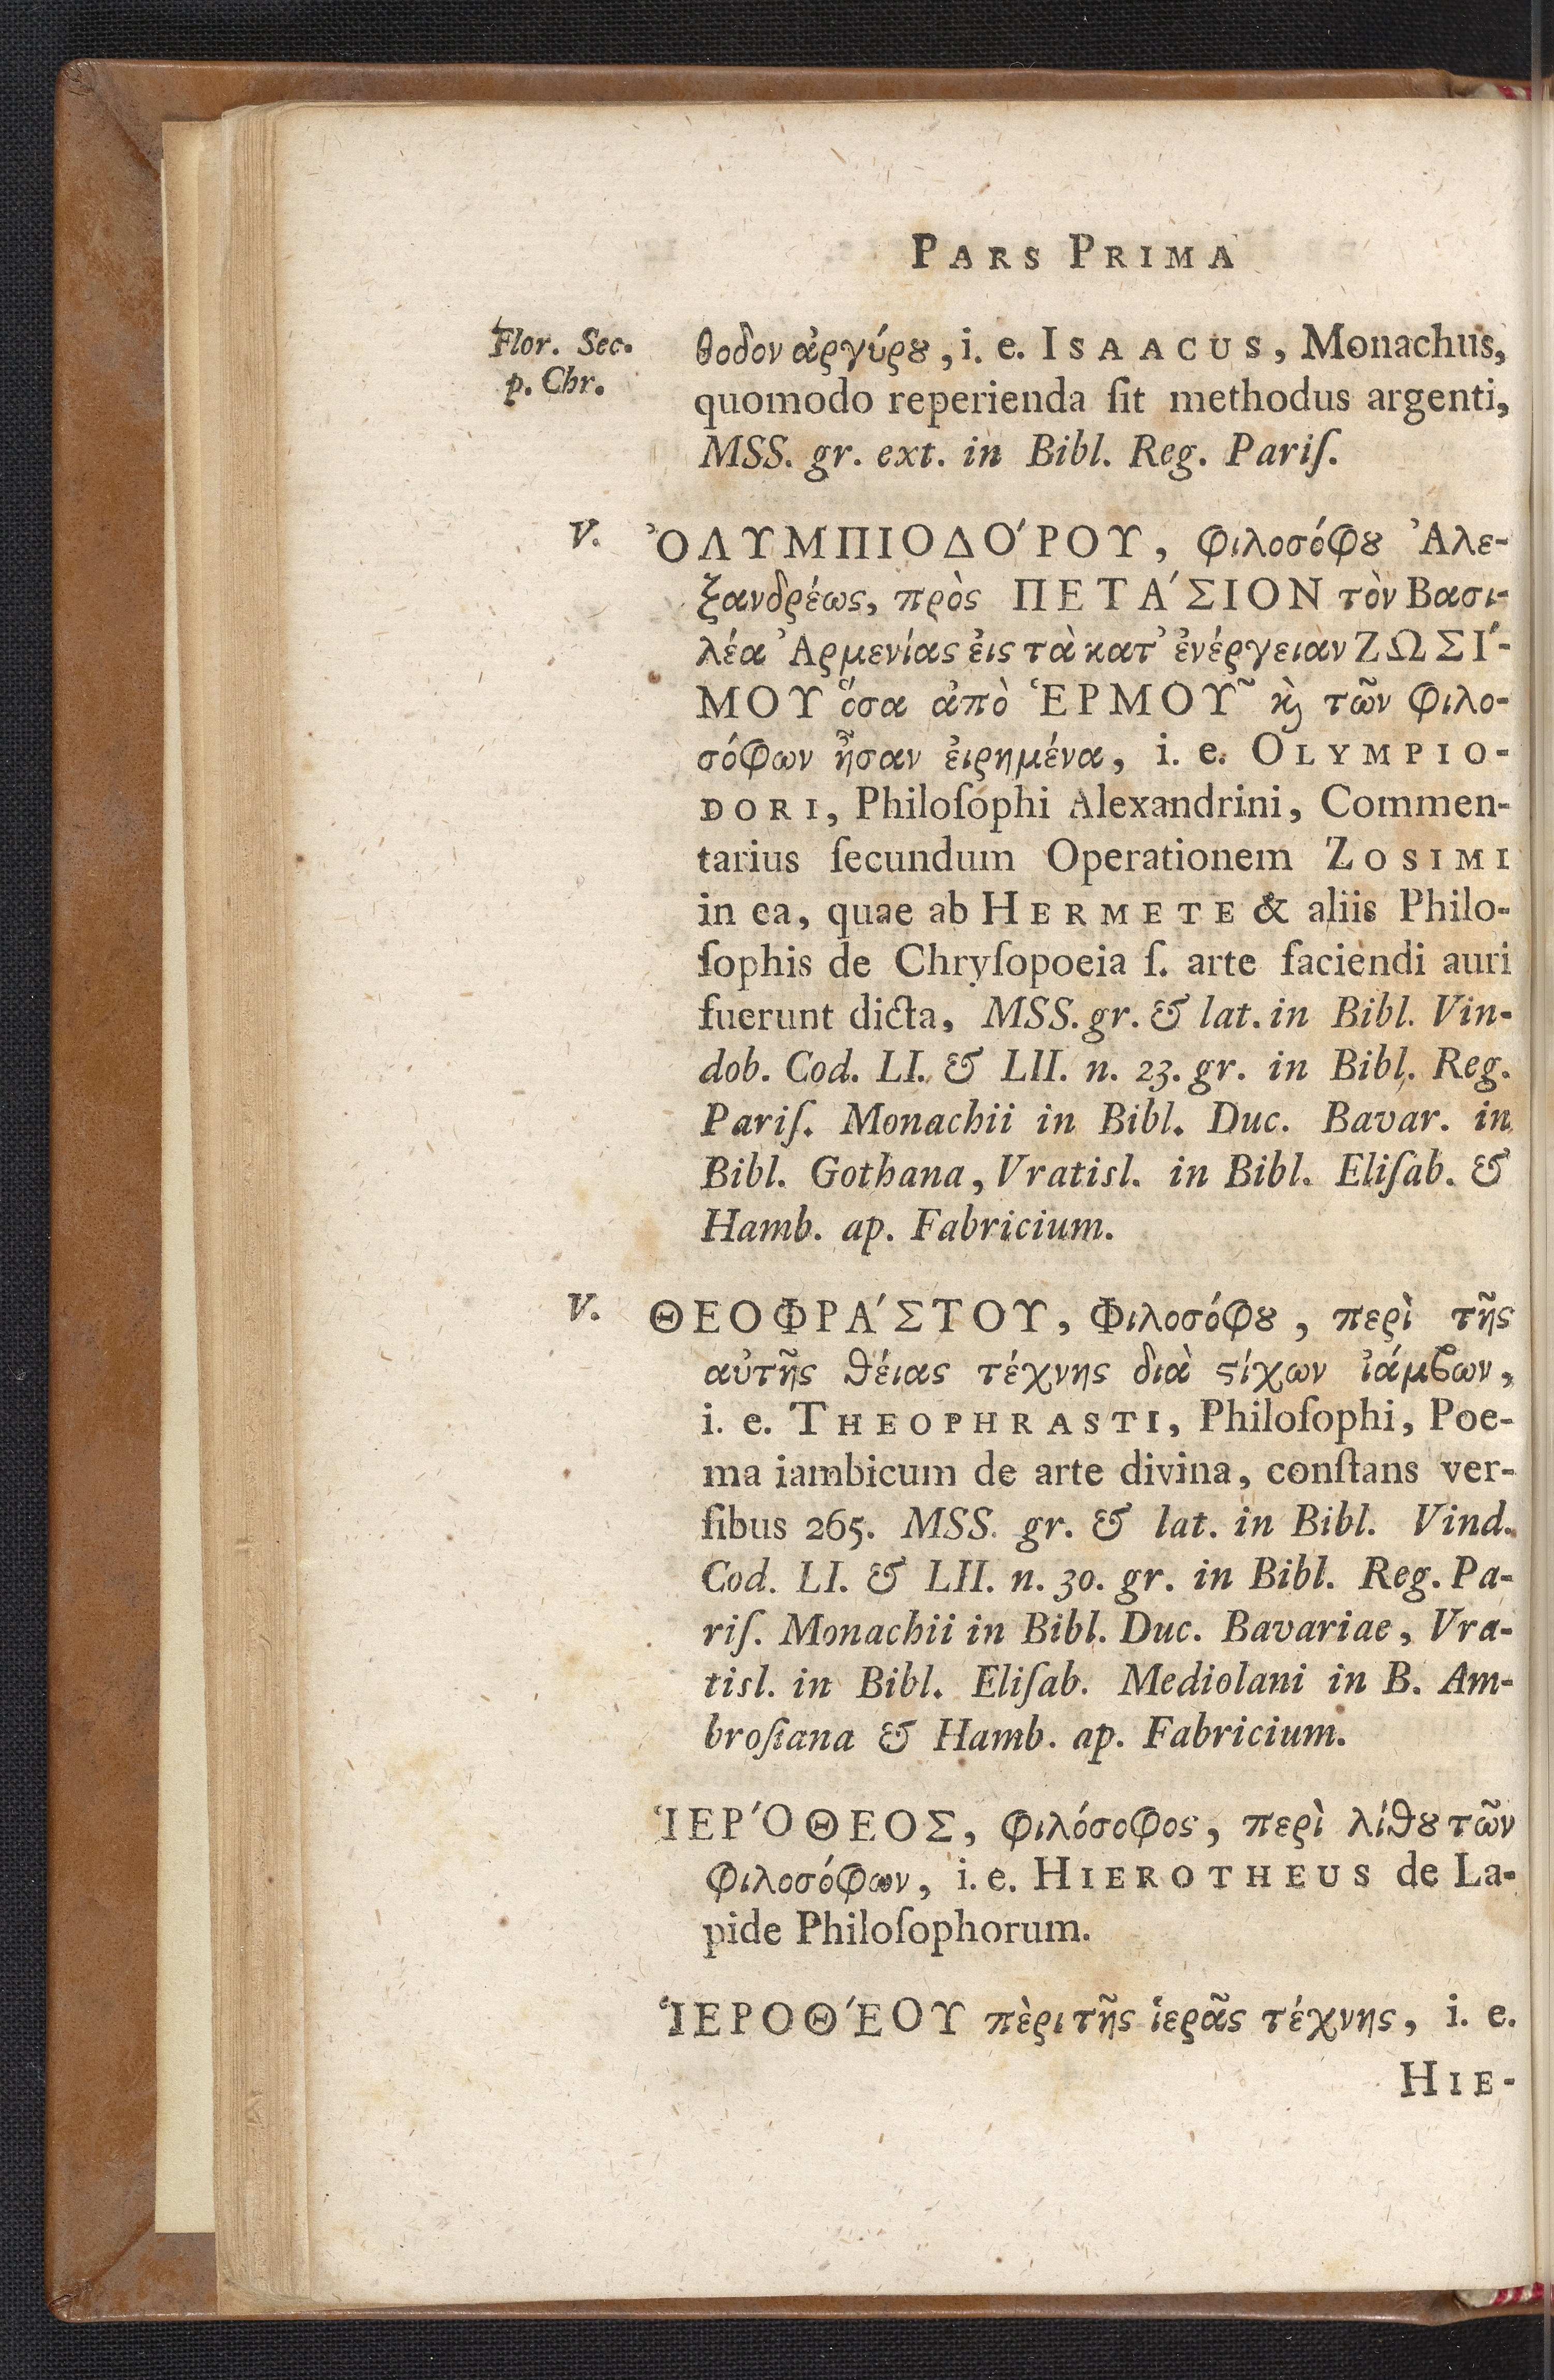 PARS PRIMA
Flor. Sec.
p. Chr.
θοδον ἀργύρȣ, i. e. ISAACUS, Monachus,
quomodo reperienda ſit methodus argenti,
MSS. gr. ext. in Bibl. Reg. Pariſ.
V. ὈΛΥΜΠΙΟΔΌΡΟΥ, φιλοσόφȣ Ἀλε-
ξανδρέως, πρὸς ΠΕΤΆΣΙΟΝ τὸν Βασι-
λέα Ἀρμενίας ἐις τὰ κατ' ἐνέργειαν ΖΩΣΊ-
ΜΟΥ ὅσα ἀπὸ ἙΡΜΟΥ͂ ϗ̀ τῶν φιλο-
σόφων ἦσαν ἐιρημένα, i. e. OLYMPIO-
DORI, Philoſophi Alexandrini, Commen-
tarius ſecundum Operationem ZOSIMI
in ea, quae ab HERMETE & aliis Philo-
ſophis de Chryſopoeia ſ. arte faciendi auri
fuerunt dicta, MSS. gr. & lat. in Bibl. Vin-
dob. Cod. LI. & LII. n. 23. gr. in Bibl. Reg.
Pariſ. Monachii in Bibl. Duc. Bavar. in
Bibl. Gothana, Vratisl. in Bibl. Eliſab. &
Hamb. ap. Fabricium.
V. ΘΕΟΦΡΆΣΤΟΥ, Φιλοσόφȣ, περὶ τῆς
αὐτῆς θέιας τέχνης διὰ ϛίχων ἰάμϐων,
i. e. THEOPHRASTI, Philoſophi, Poe-
ma iambicum de arte divina, conſtans ver-
ſibus 265. MSS. gr. & lat. in Bibl. Vind.
Cod. LI. & LII. n. 30. gr. in Bibl. Reg. Pa-
riſ. Monachii in Bibl. Duc. Bavariae, Vra-
tisl. in Bibl. Eliſab. Mediolani in B. Am-
broſiana & Hamb. ap. Fabricium.
ἹΕΡΌΘΕΟΣ, φιλόσοφος, περὶ λίθȣ τῶν
φιλοσόφων, i. e. HIEROTHEUS de La-
pide Philoſophorum.
ἹΕΡΟΘΈΟΥ πὲρι τῆς ἱερᾶς τέχνης, i. e.
HIE-